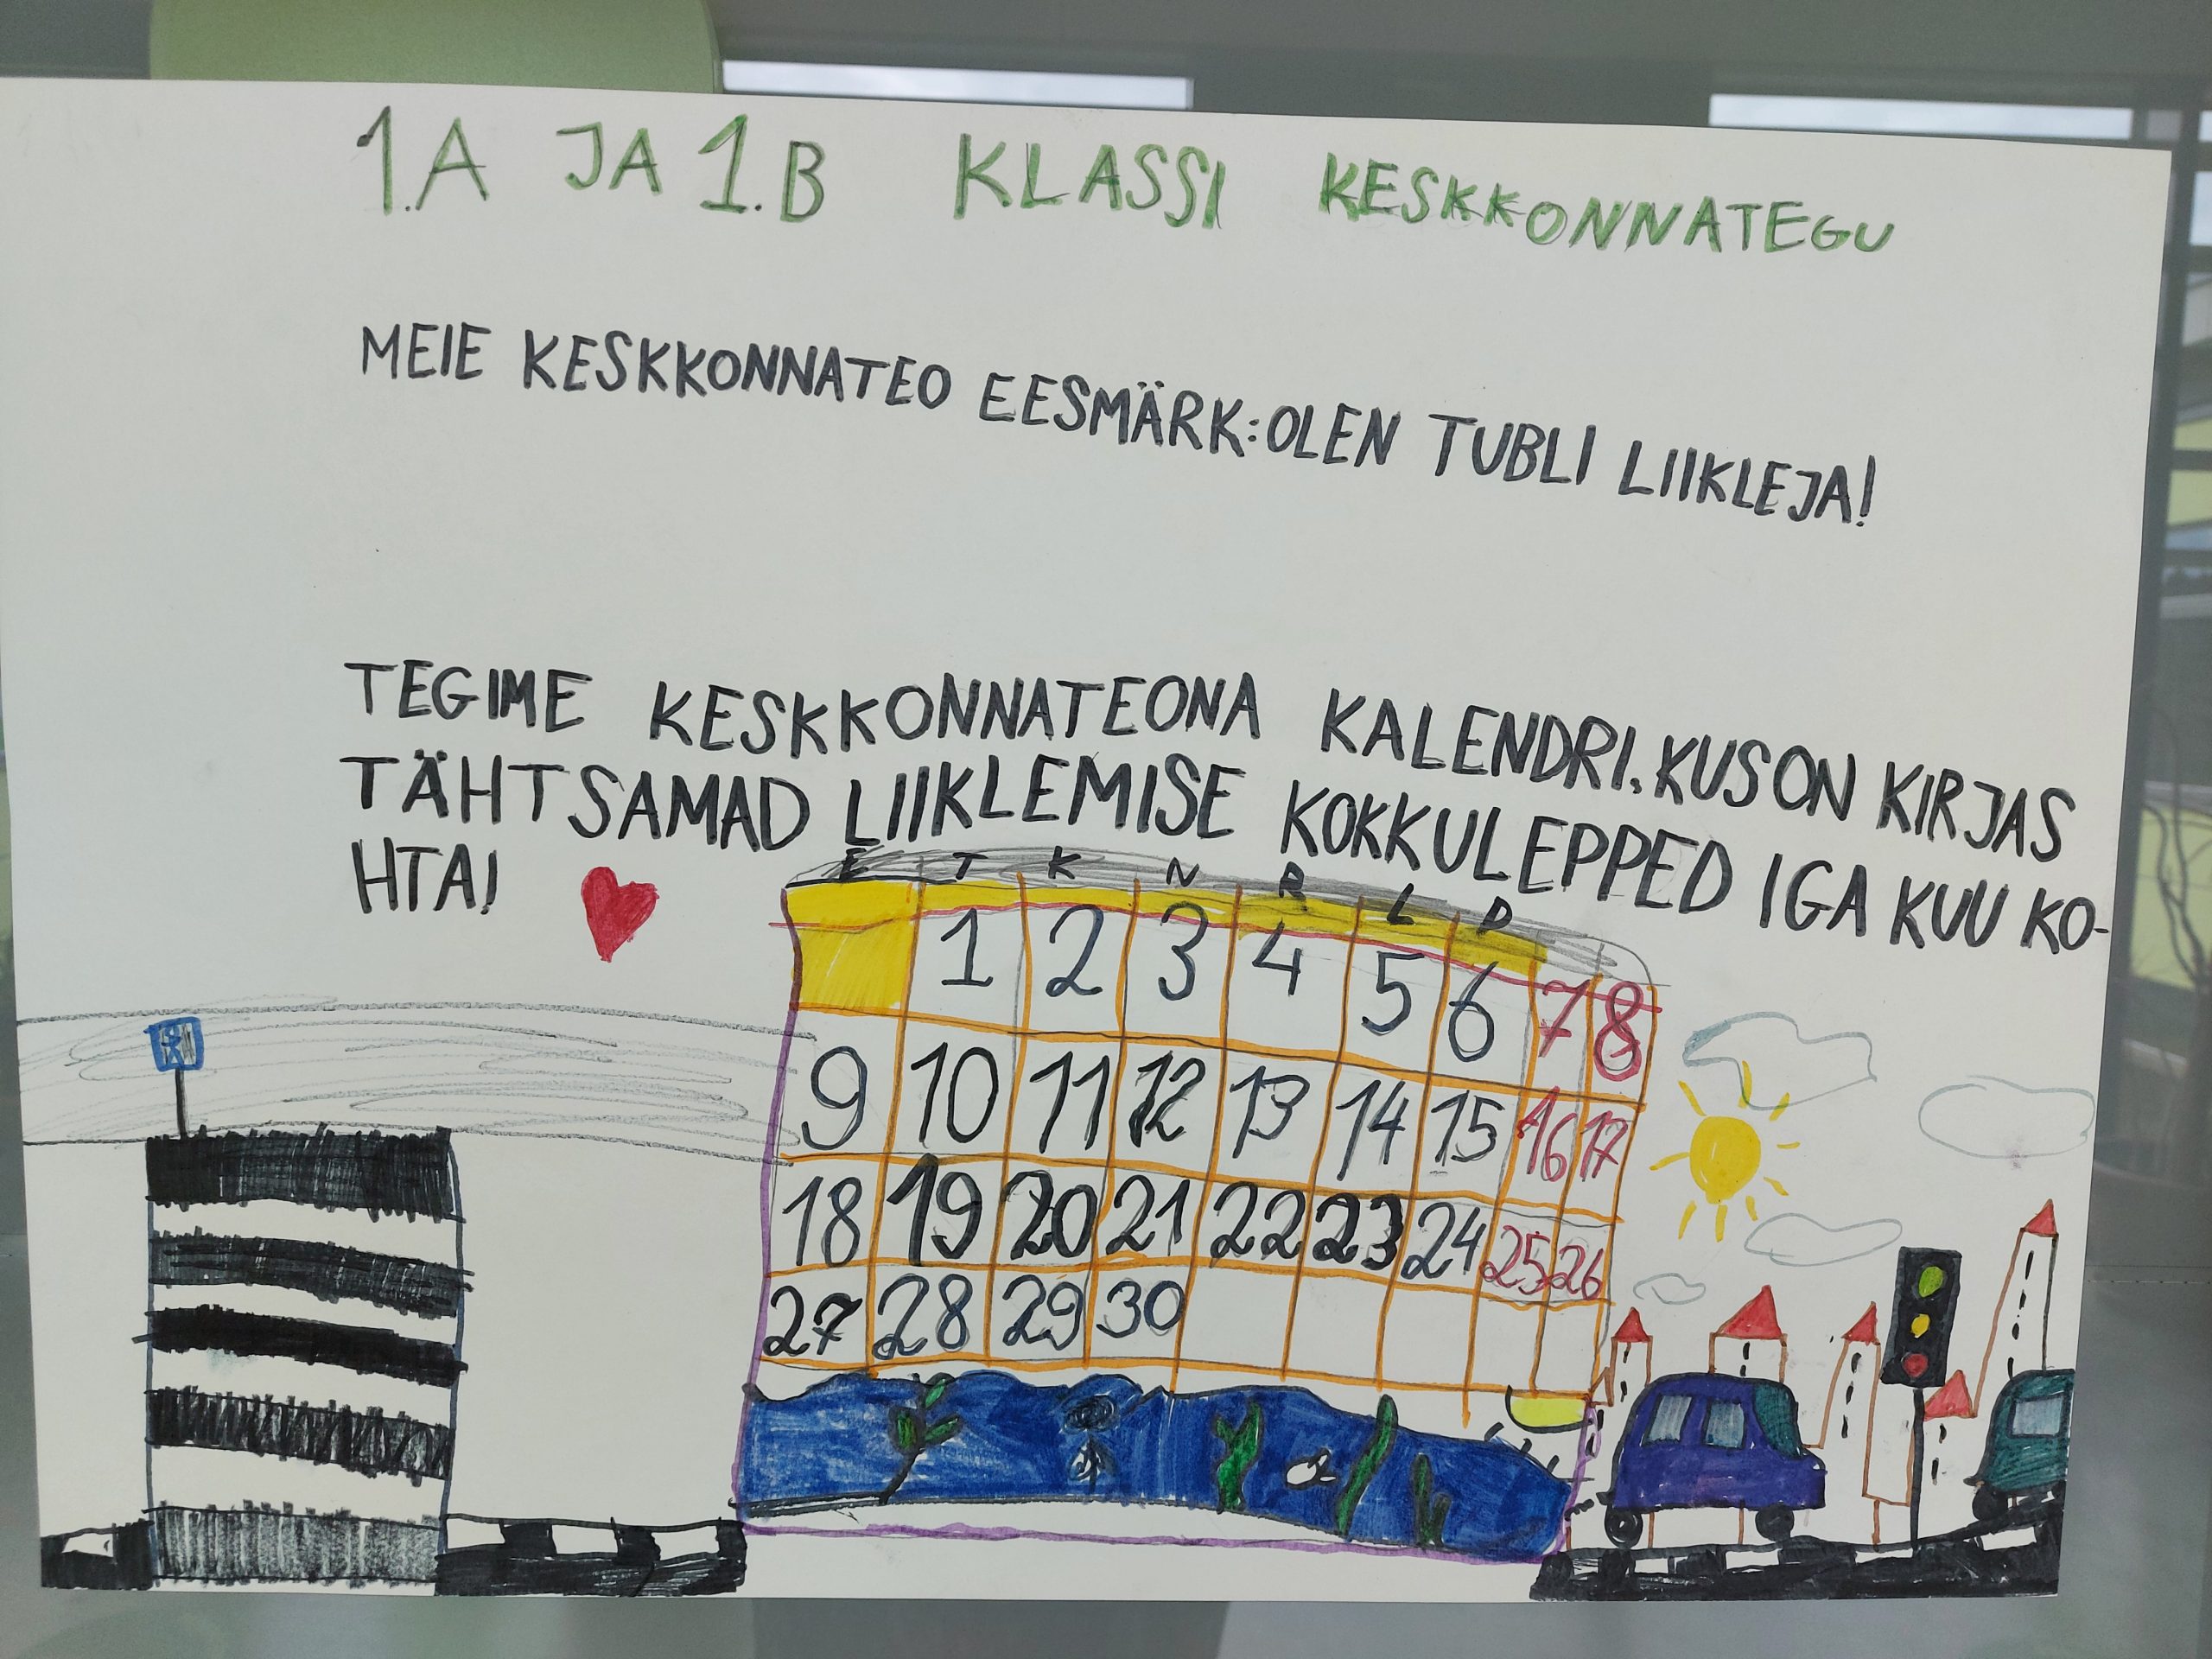 1.A JA 1.B KLASSI KESKKONNATEGU
MEIE KESKKONNATEO EESMÄRK:OLEN TUBLI LIIKLEJA!
TEGIME KESKKONNATEONA KALENDRI, KUS ON KIRJAS
TÄHTSAMAD LIIKLEMISE KOKKULEPPED IGA KUU KO-
HTA!
E T K N R L P
1 2 3 4 5 6 7 8
9 10 11 12 13 14 15 16 17
18 19 20 21 22 23 24 25 26
27 28 29 30